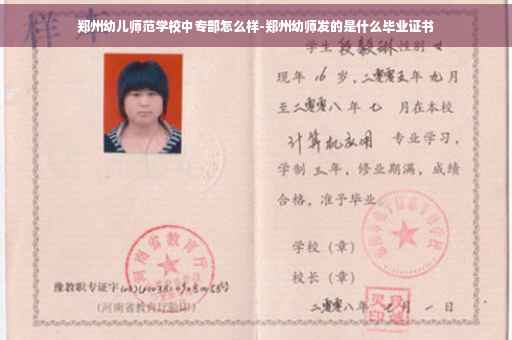 郑州幼儿师范学校中专部怎么样-郑州幼师发的是什么毕业证书
样本
学生段毅琳性别女
现年16岁，二零零五年九月
至二零零八年七月在本校
计算机应用 专业学习，
学制三年，修业期满，成绩
合格，准予毕业
学校（章）
校长（章）
二零零八年七月一日
河南省教育厅
豫教职专证字
（河南省教育厅验印）